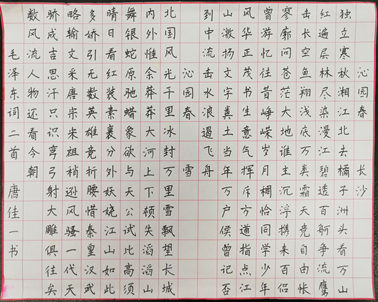 沁园春 长沙
独立寒秋湘江北去橘子洲头看万山
红遍层林尽染漫江碧透百舸争流鹰
击长空鱼翔浅底万类霜天竞自由怅
寥廓问苍茫大地谁主沉浮携来百侣
曾游忆往昔峥嵘岁月稠恰同学少年
风华正茂书生意气挥斥方遒指点江
山激扬文字粪土当年万户侯曾记否
到中流击水浪遏飞舟
沁园春 雪
北国风光千里冰封万里雪飘望长城
内外惟余莽莽大河上下顿失滔滔山
舞银蛇原驰蜡象欲与天公试比高须
晴日看红装素裹分外妖娆江山如此
多娇引无数英雄竞折腰惜秦皇汉武
略输文采唐宗宋祖稍逊风骚一代天
骄成吉思汗只识弯弓射大雕俱往矣
数风流人物还看今朝
毛泽东词二首 唐佳一书